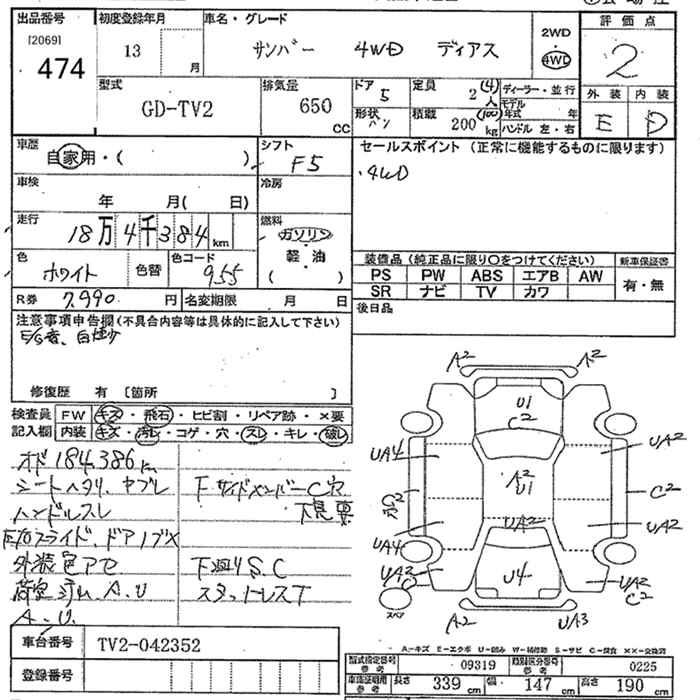 出品番号
[2069]
474
初度登録年月
13 月
車名・グレード
サンバー 4WD ディアス
2WD
4WD
評価点
2
型式
GD-TV2
排気量
650
CC
ドア
5
定員
2(4)
人
ディーラー・並行
モデル
年式 年
ハンドル 左・右
形状
バン
積載
200(100)
kg
外装 内装
E D
車歴
自家用・( )
シフト
F5
セールスポイント (正常に機能するものに限ります)
・4WD
車検
年 月( 日)
冷房
走行
18万4千384km
燃料
ガソリン
軽・油
( )
色
ホワイト
色替
色コード
955
装備品 (純正品に限り○をつけてください)
新車保証書
PS PW ABS エアB AW
SR ナビ TV カワ
有・無
R券 7,990 円
名変期限 月 日
後日品
注意事項申告欄(不具合内容等は具体的に記入して下さい)
E/G音、白煙少
修復歴 有 [箇所 ]
検査員
記入欄
FW キズ・飛石・ヒビ割・リペア跡・×要
内装 キズ・汚れ・コゲ・穴・スレ・キレ・破レ
オド184,386km
シートヘタリ、ヤブレ
下サイドメンバーC穴
ハンドルスレ
下見要
スライド、ドアノブX
外装色アセ
下廻りS、C
荷室 A、U
スタットレスT
A、U
A2 A2
U1
C2
UA4 UA2
A2
U1
C2 C2
穴
UA2
UA4 UA2
UA2 UA2
C U4 C2
スペア
A2 UA3
A-キズ E-エクボ U-凹み W-補修跡 S-サビ C-腐食 ××-交換済
車台番号 TV2-042352
登録番号
型式指定番号
参考
09319
類別区分番号
参考
0225
車検証明用
参考
長さ 339 cm
幅 147 cm
高さ 190 cm